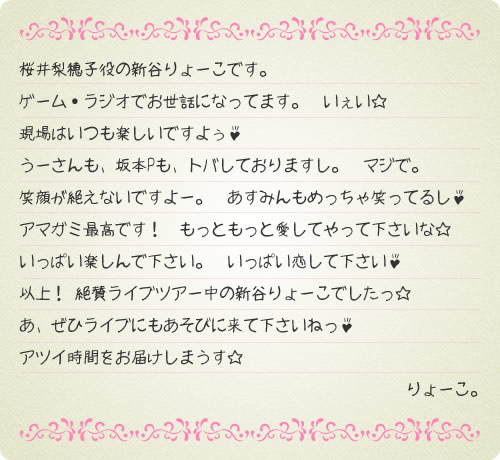 桜井梨穂子役の新谷りょーこです。
ゲーム・ラジオでお世話になってます。　いぇい☆
現場はいつも楽しいですよぅ♥
うーさんも、坂本Pも、トバしておりますし。　マジで。
笑顔が絶えないですよー。　あすみんもめっちゃ笑ってるし♥
アマガミ最高です！　もっともっと愛してやって下さいな☆
いっぱい楽しんで下さい。　いっぱい恋して下さい♥
以上！ 絶賛ライブツアー中の新谷りょーこでしたっ☆
あ、ぜひライブにもあそびに来て下さいねっ♥
アツイ時間をお届けしまうす☆
りょーこ。